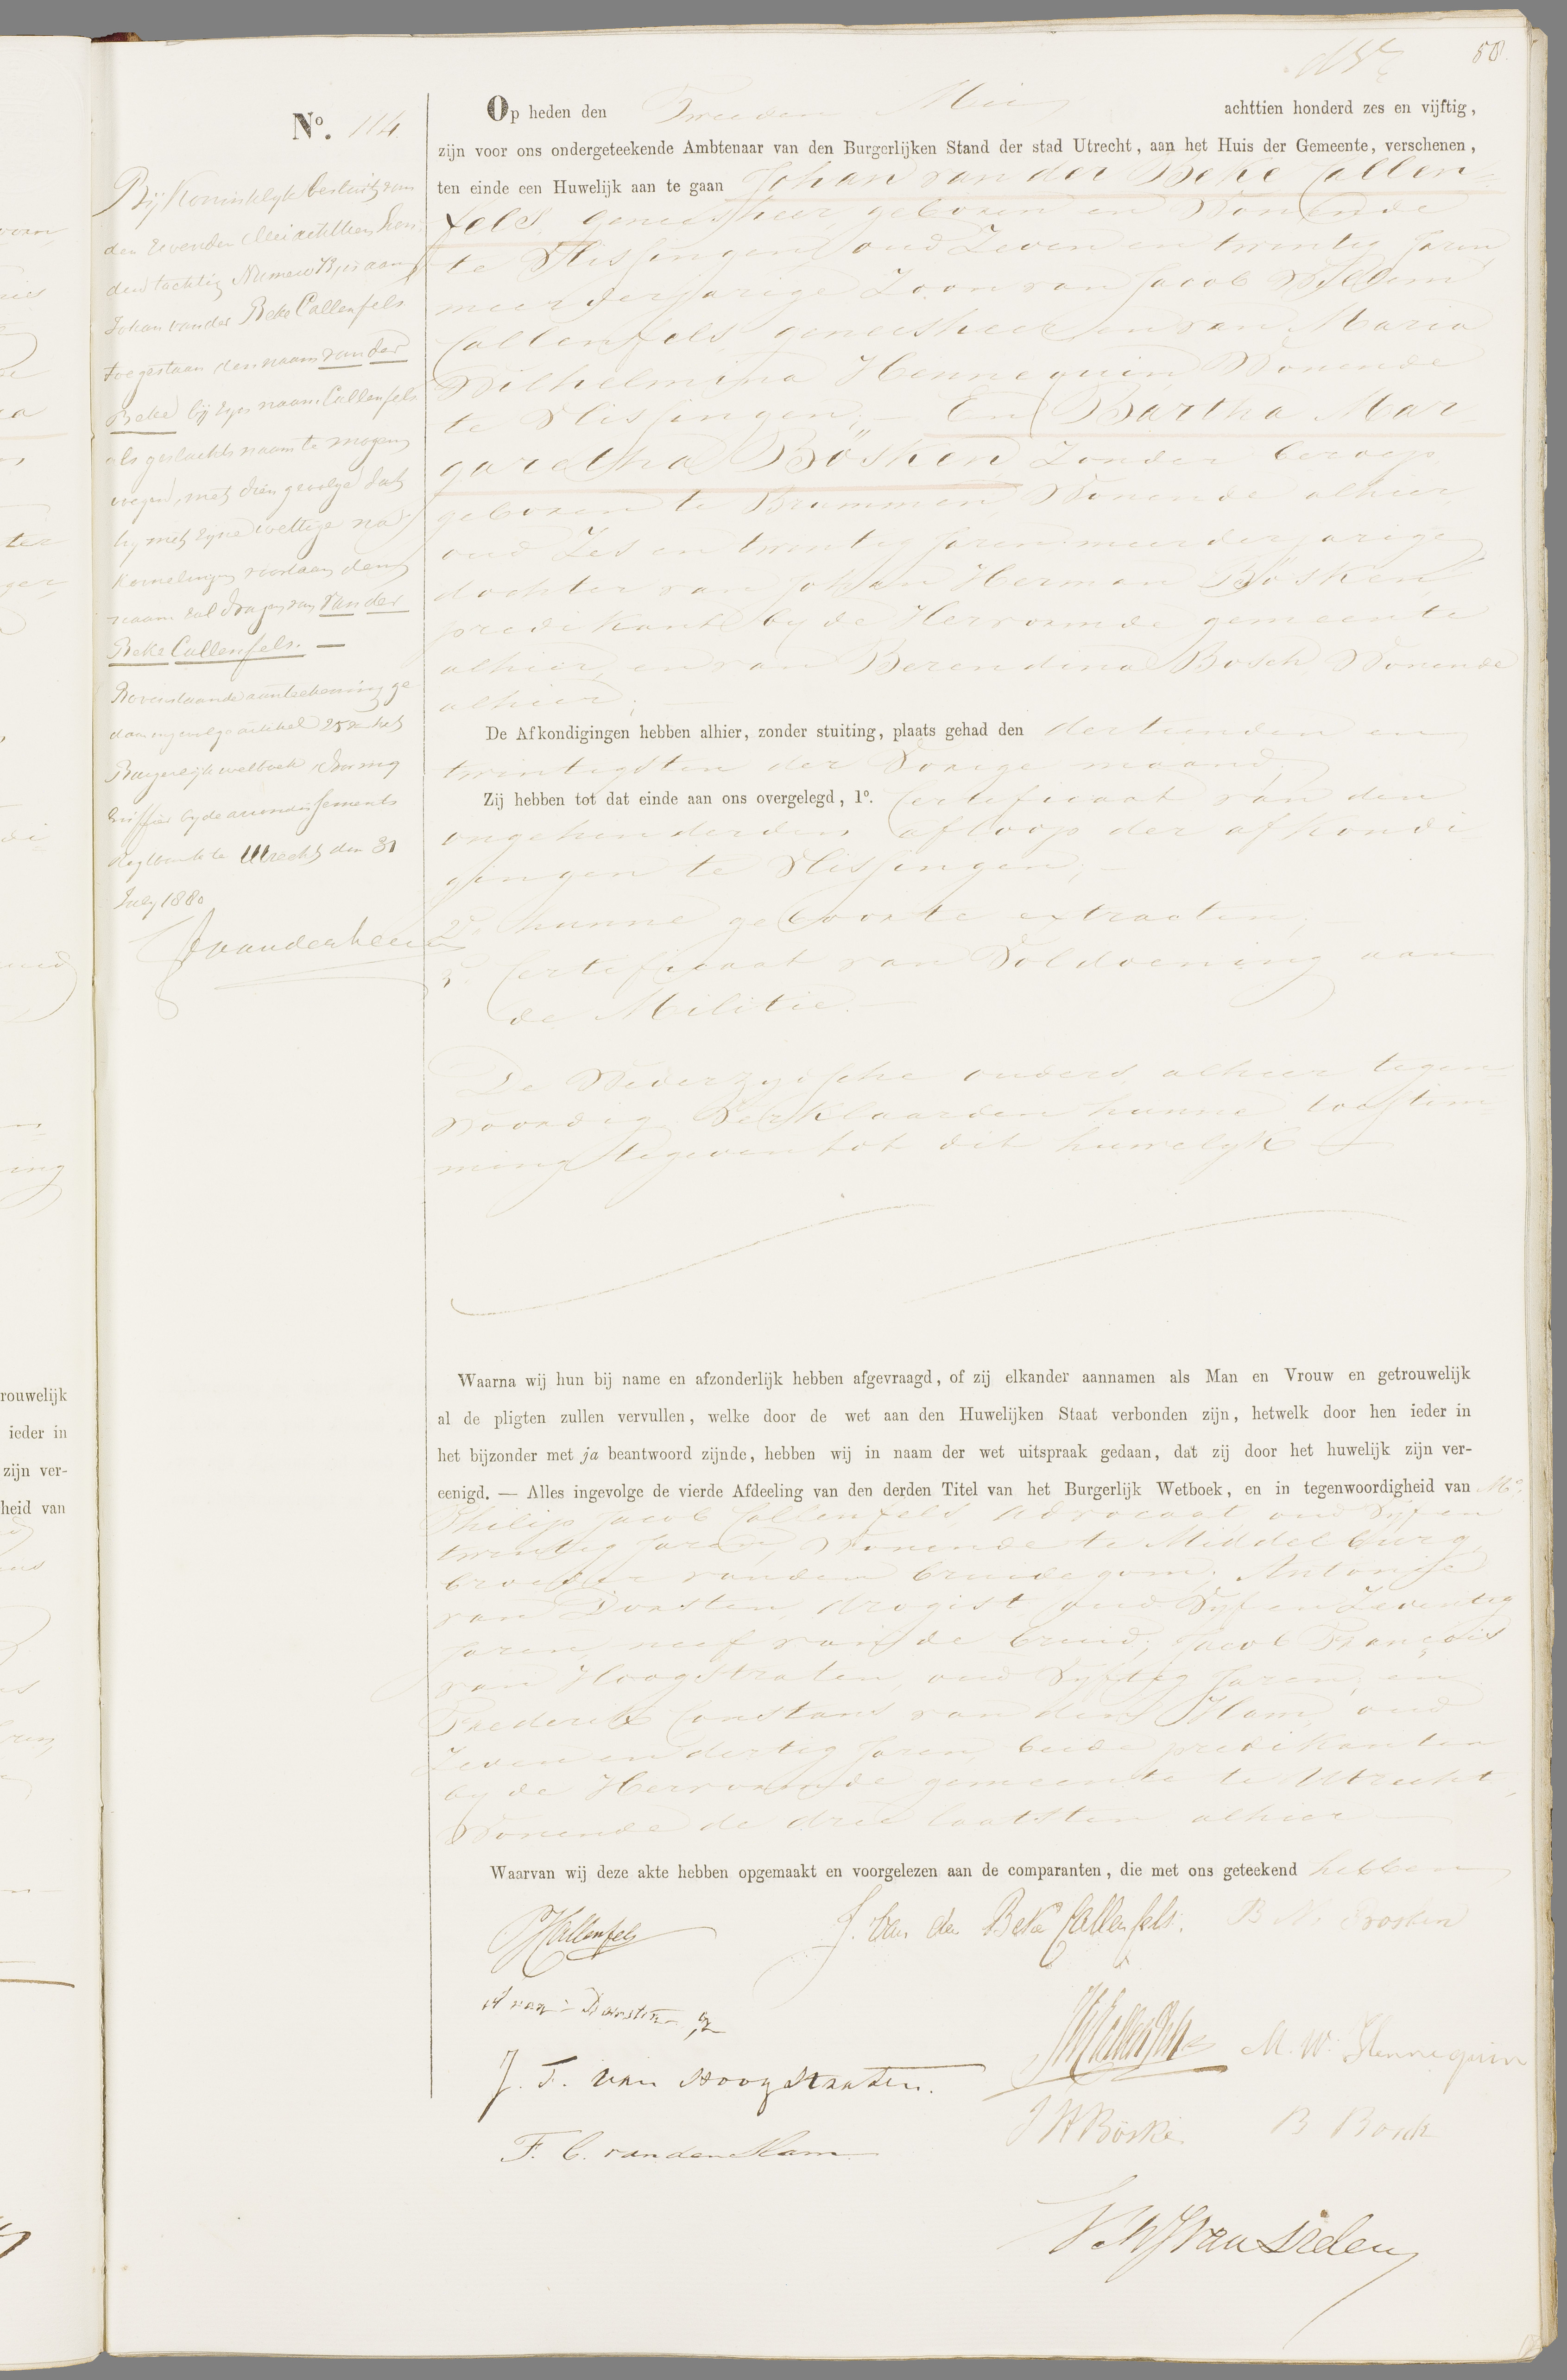 50.
No. 114
Bij Koninklijk besluit van
den zevenden Mei achttien hon-
derd tachtig Numero is aan
Johan van der Beke Callenfels
toegestaan den naam van der
Beke bij zijn naam Callenfels
als geslachtsnaam te mogen
voegen, met dien gevolge dat
hij met zijne wettige na-
komelingen voortaan den
naam zal dragen van van der
Beke Callenfels. —
Bovenstaande aanteekening ge-
daan ingevolge artikel 25 van het
Burgerlijk wetboek door mij
Griffier bij de arrondissements
Regtbank te Utrecht den 31
July 1880
Op heden den Tweeden Mei achttien honderd zes en vijftig,
zijn voor ons ondergeteekende Ambtenaar van den Burgerlijken Stand der stad Utrecht, aan het Huis der Gemeente, verschenen,
ten einde een Huwelijk aan te gaan Johan van der Beke Callen-
fels, geneesheer, geboren en Wonende
te Vlissingen, oud Zeven en twintig Jaren,
meerderjarige Zoon van Jacob Willem
Callenfels, geneesheer, en van Maria
Wilhelmina Hennequin, Wonende
te Vlissingen; En Bartha Mar-
garetha Bösken, Zonder beroep,
geboren te Brummen, Wonende alhier,
oud Zes en twintig Jaren, meerderjarige
dochter van Johan Herman Bösken,
predikant by de Hervormde gemeente
alhier, en van Berendina Bosch, Wonende
alhier;
De Afkondigingen hebben alhier, zonder stuiting, plaats gehad den dertienden en
twintigsten der Vorige maand,
Zij hebben tot dat einde aan ons overgelegd, 1o. Certificaat van den
ongehinderden afloop der afkondi-
gingen te Vlissingen;
2o. hunne geboorte extracten;
3o. Certificaat van Voldoening aan
de Militie.
De Wederzydsche ouders, alhier tegen-
woordig Verklaarden hunne toestem-
ming te geven tot dit huwelyk
Waarna wij hun bij name en afzonderlijk hebben afgevraagd, of zij elkander aannamen als Man en Vrouw en getrouwelijk
al de pligten zullen vervullen, welke door de wet aan den Huwelijken Staat verbonden zijn, hetwelk door hen ieder in
het bijzonder met ja beantwoord zijnde, hebben wij in naam der wet uitspraak gedaan, dat zij door het huwelijk zijn ver-
eenigd. — Alles ingevolge de vierde Afdeeling van den derden Titel van het Burgerlijk Wetboek, en in tegenwoordigheid van Mr.
Philip Jacob Callenfels, advocaat, oud Vyf en
twintig Jaren, Wonende te Middelburg,
broeder van den bruidegom; Antonie
van Dorsten, drogist, oud Vyf en Zeventig
Jaren, neef van de bruid; Jacob François
van Hoogstraten, oud Vyftig Jaren, en
Frederik Constans van den Ham, oud
Zeven en dertig Jaren, beide predikanten
by de Hervormde gemeente te Utrecht,
Wonende de drie laatsten alhier
Waarvan wij deze akte hebben opgemaakt en voorgelezen aan de comparanten, die met ons geteekend hebben
PJCallenfels
J. Van der Beke Callenfels.
B M Bosken
A van Dorsten
JWCallenfels
M. W. Hennequin
J. F. van Hoogstraten.
J H Bösken
B Bosch
F. C. van den Ham
rouwelijk
ieder in
zijn ver-
heid van